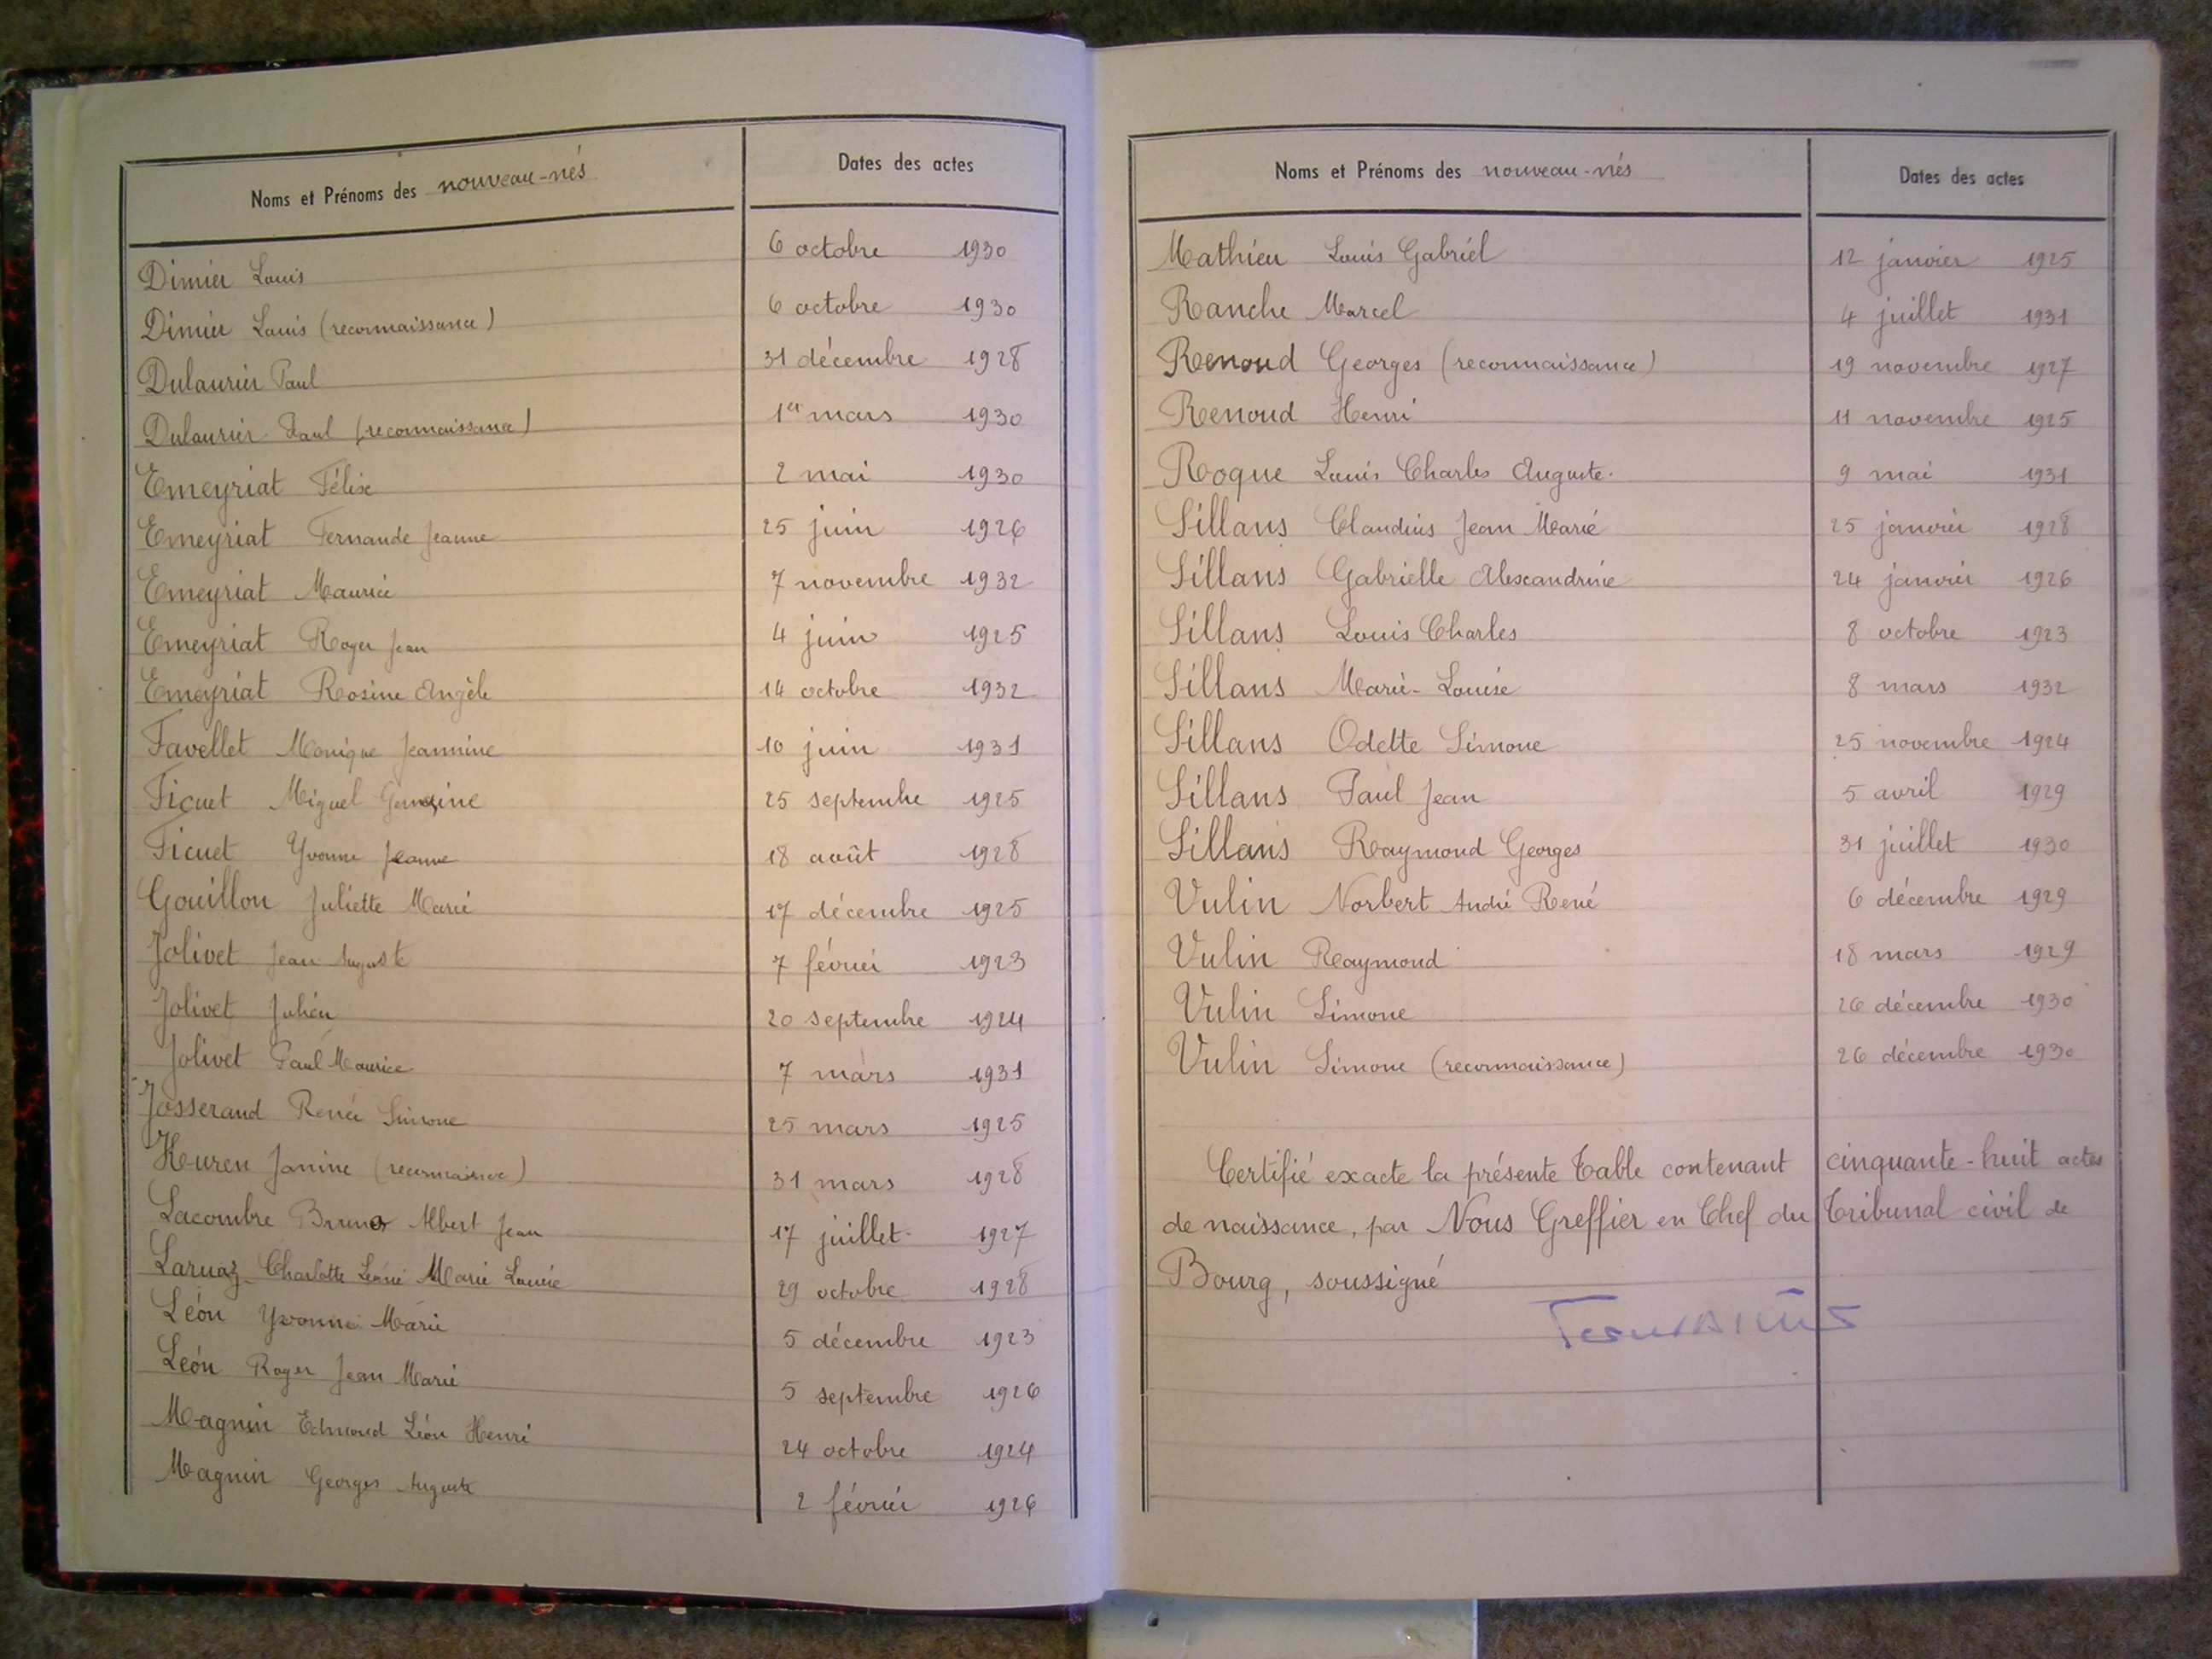 Noms et Prénoms des nouveau-nés Dates des actes
Dimier Louis 6 octobre 1930
Dimier Louis (reconnaissance) 6 octobre 1930
Dulaurier Paul 31 décembre 1928
Dulaurier Paul (reconnaissance) 1er mars 1930
Emeyriat Félix 2 mai 1930
Emeyriat Fernande Jeanne 25 juin 1926
Emeyriat Maurice 7 novembre 1932
Emeyriat Roger Jean 4 juin 1925
Emeyriat Rosine Angèle 14 octobre 1932
Favellet Monique Jeannine 10 juin 1931
Ficuet Miguel 25 septembre 1925
Ficuet Yvonne Jeanne 18 août 1928
Gouillon Juliette Marie 17 décembre 1925
Jolivet Jean Auguste 7 février 1923
Jolivet Julien 20 septembre 1924
Jolivet Paul Maurice 7 mars 1931
Josserand Renée Simone 25 mars 1925
Kuren Janine 31 mars 1928
Lacombre Bruno Albert Jean 17 juillet 1927
Laruaz Charlotte Léonie Marie Louise 29 octobre 1928
Léon Yvonne Marie 5 décembre 1923
Léon Roger Jean Marie 5 septembre 1926
Magnin Edmond Léon Henri 24 octobre 1924
Magnin Georges Auguste 2 février 1926
Noms et Prénoms des nouveau-nés Dates des actes
Mathieu Louis Gabriel 12 janvier 1925
Ranche Marcel 4 juillet 1931
Renoud Georges (reconnaissance) 19 novembre 1927
Renoud Henri 11 novembre 1925
Roque Louis Charles Auguste. 9 mai 1931
Sillans Claudius Jean Marie 25 janvier 1928
Sillans Gabrielle Alexandrine 24 janvier 1926
Sillans Louis Charles 8 octobre 1923
Sillans Marie-Louise 8 mars 1932
Sillans Odette Simone 25 novembre 1924
Sillans Paul Jean 5 avril 1929
Sillans Raymond Georges 31 juillet 1930
Vulin Norbert André René 6 décembre 1929
Vulin Raymond 18 mars 1929
Vulin Simone 26 décembre 1930
Vulin Simone (reconnaissance) 26 décembre 1930
Certifié exacte la présente Table contenant cinquante-huit actes
de naissance, par Nous Greffier en Chef du Tribunal civil de
Bourg, soussigné